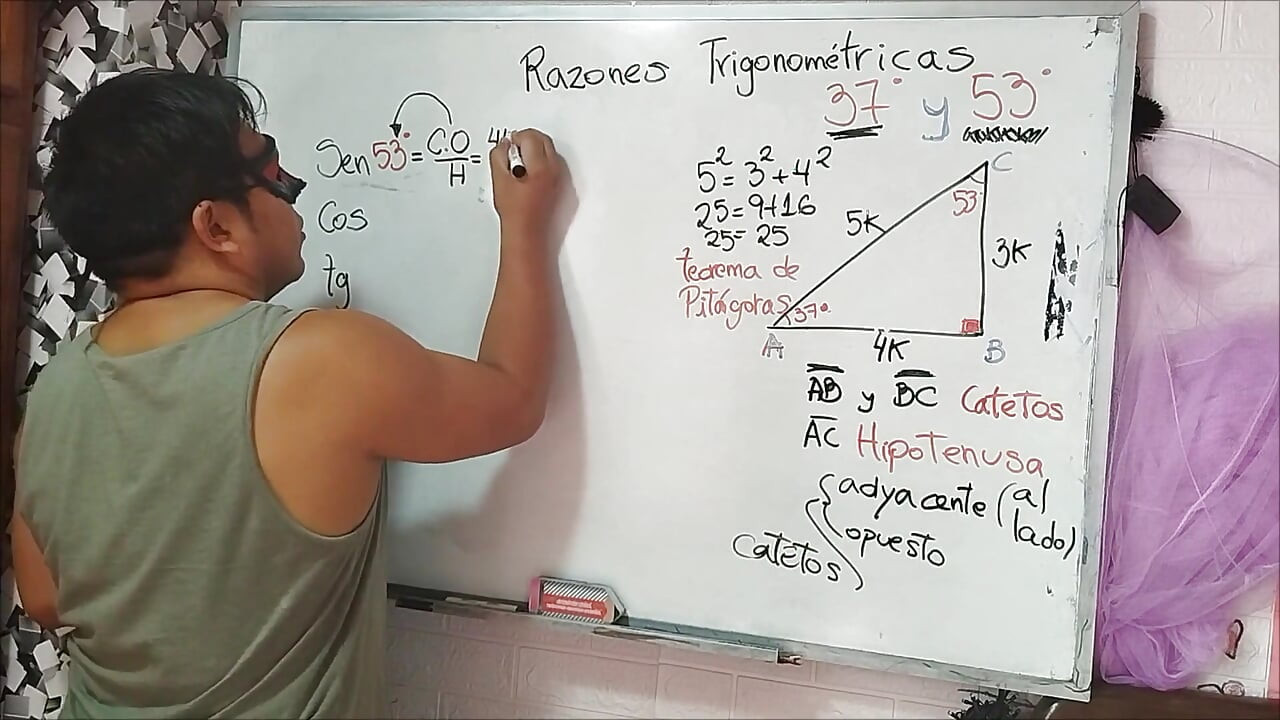 Razones Trigonométricas
37° y 53°
Sen 53° = C.O / H = 4
Cos
tg
5² = 3² + 4²
25 = 9 + 16
25 = 25
teorema de
Pitágoras
C
53
5K
3K
37°
A
4K
B
AB y BC Catetos
AC Hipotenusa
Catetos
adyacente (al
lado)
opuesto